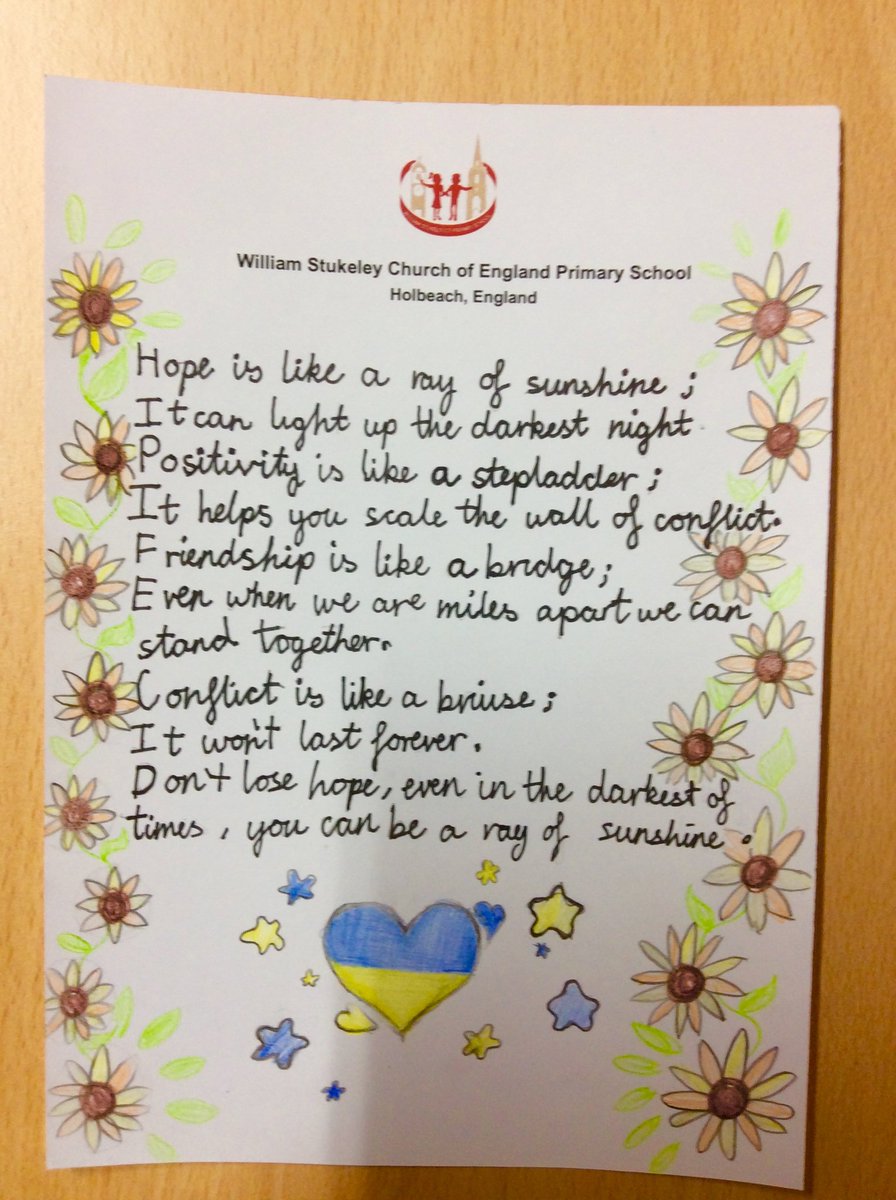 William Stukeley Church of England Primary School
Holbeach, England
Hope is like a ray of sunshine ;
It can light up the darkest night
Positivity is like a stepladder ;
It helps you scale the wall of conflict.
Friendship is like a bridge ;
Even when we are miles apart we can
stand together.
Conflict is like a briuse ;
It won't last forever.
Don't lose hope, even in the darkest of
times, you can be a ray of sunshine.